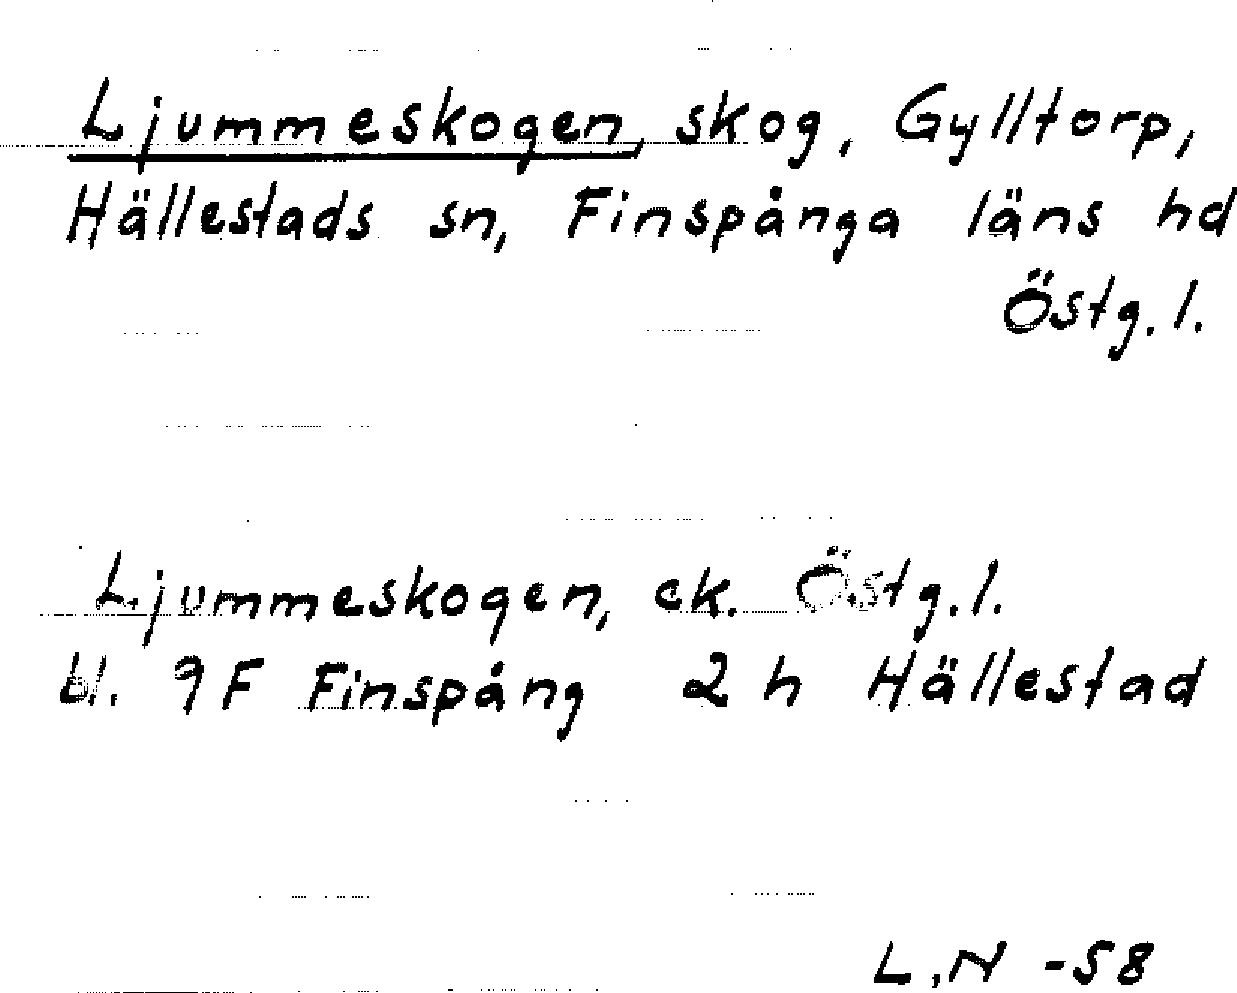 Ljummeskogen, skog, Gylltorp,
Hällestads sn, Finspånga läns hd
Östg.l.
Ljummeskogen, ek. Östg.l.
bl. 9F Finspång 2 h Hällestad
L.N -58